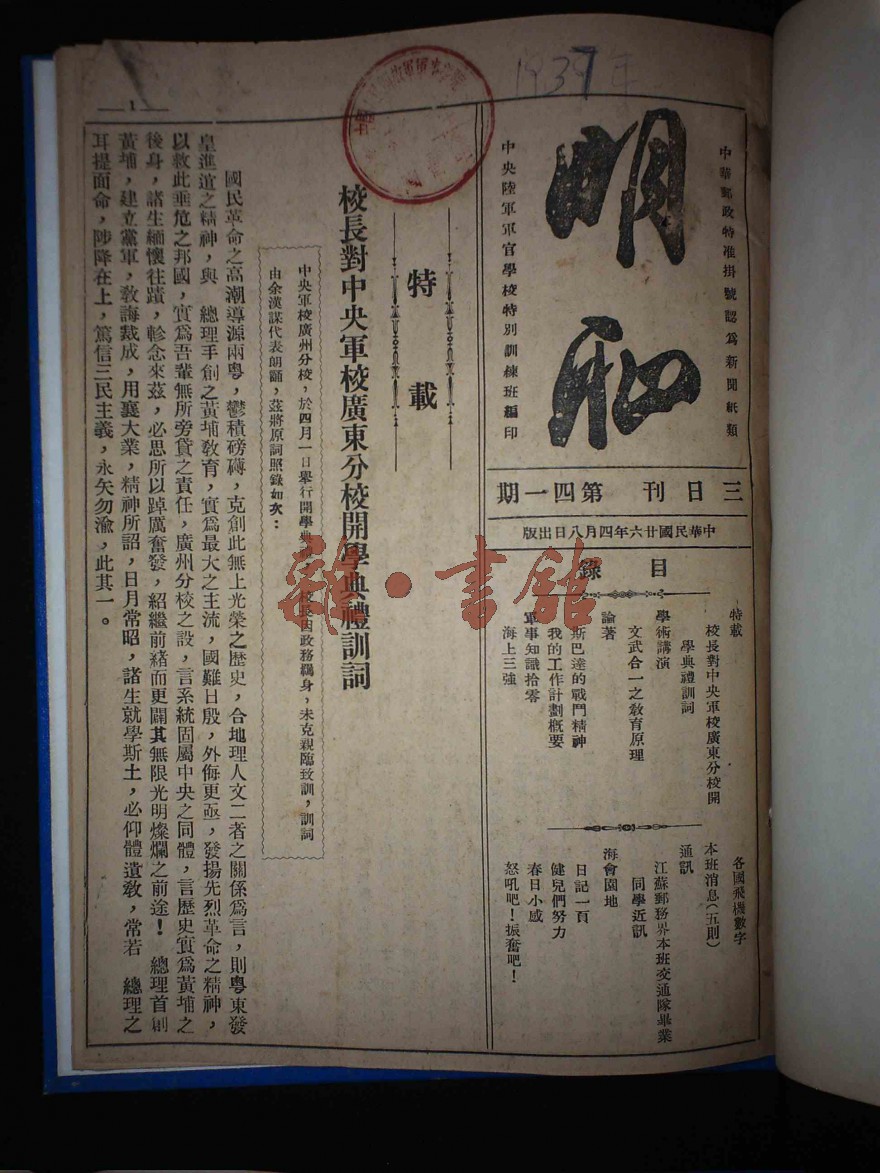 1937年
中華郵政特准掛號認爲新聞紙類
明恥
中央陸軍軍官學校特別訓練班編印
三日刊 第四一期
中華民國廿六年四月八日出版
目錄
特載
校長對中央軍校廣東分校開
學典禮訓詞
學術講演
文武合一之教育原理
論著
斯巴達的戰鬥精神
我的工作計劃概要
軍事知識拾零
海上三強
各國飛機數字
本班消息(五則)
通訊
江蘇郵務界本班交通隊畢業
同學近訊
海會園地
日記一頁
健兒們努力
春日小感
怒吼吧!振奮吧!
特載
校長對中央軍校廣東分校開學典禮訓詞
中央軍校廣州分校,於四月一日舉行開學典 校長因政務羈身,未克親臨致訓,訓詞
由余漢謀代表朗誦,茲將原詞照錄如次:
國民革命之高潮導源兩粵,鬱積磅礴,克創此無上光榮之歷史,合地理人文二者之關係爲言,則粵東發
皇進道之精神,與 總理手創之黃埔教育,實爲最大之主流,國難日殷,外侮更亟,發揚先烈革命之精神,
以救此垂危之邦國,實爲吾輩無所旁貸之責任,廣州分校之設,言系統固屬中央之同體,言歷史實爲黃埔之
後身,諸生緬懷往蹟,軫念來茲,必思所以踔厲奮發,紹繼前緒而更闢其無限光明燦爛之前途! 總理首創
黃埔,建立黨軍,敎誨裁成,用襄大業,精神所詔,日月常昭,諸生就學斯土,必仰體遺敎,常若 總理之
耳提面命,陟降在上,篤信三民主義,永矢勿渝,此其一。
1
雜·書館